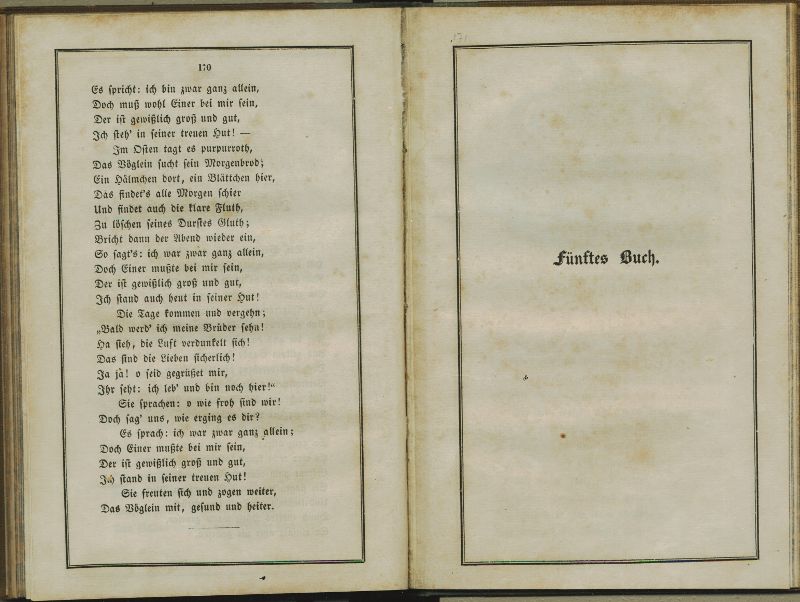 170
Es spricht: ich bin zwar ganz allein,
Doch muß wohl Einer bei mir sein,
Der ist gewißlich groß und gut,
Ich steh' in seiner treuen Hut! —
Im Osten tagt es purpurroth,
Das Vöglein sucht sein Morgenbrod;
Ein Hälmchen dort, ein Blättchen hier,
Das findet's alle Morgen schier
Und findet auch die klare Fluth,
Zu löschen seines Durstes Gluth;
Bricht dann der Abend wieder ein,
So sagt's: ich war zwar ganz allein,
Doch Einer mußte bei mir sein,
Der ist gewißlich groß und gut,
Ich stand auch heut in seiner Hut!
Die Tage kommen und vergehn;
„Bald werd' ich meine Brüder sehn!
Ha sieh, die Luft verdunkelt sich!
Das sind die Lieben sicherlich!
Ja jà! o seid gegrüßet mir,
Ihr seht: ich leb' und bin noch hier!“
Sie sprachen: o wie froh sind wir!
Doch sag' uns, wie erging es dir?
Es sprach: ich war zwar ganz allein;
Doch Einer mußte bei mir sein,
Der ist gewißlich groß und gut,
Ich stand in seiner treuen Hut!
Sie freuten sich und zogen weiter,
Das Vöglein mit, gesund und heiter.
171
Fünftes Buch.